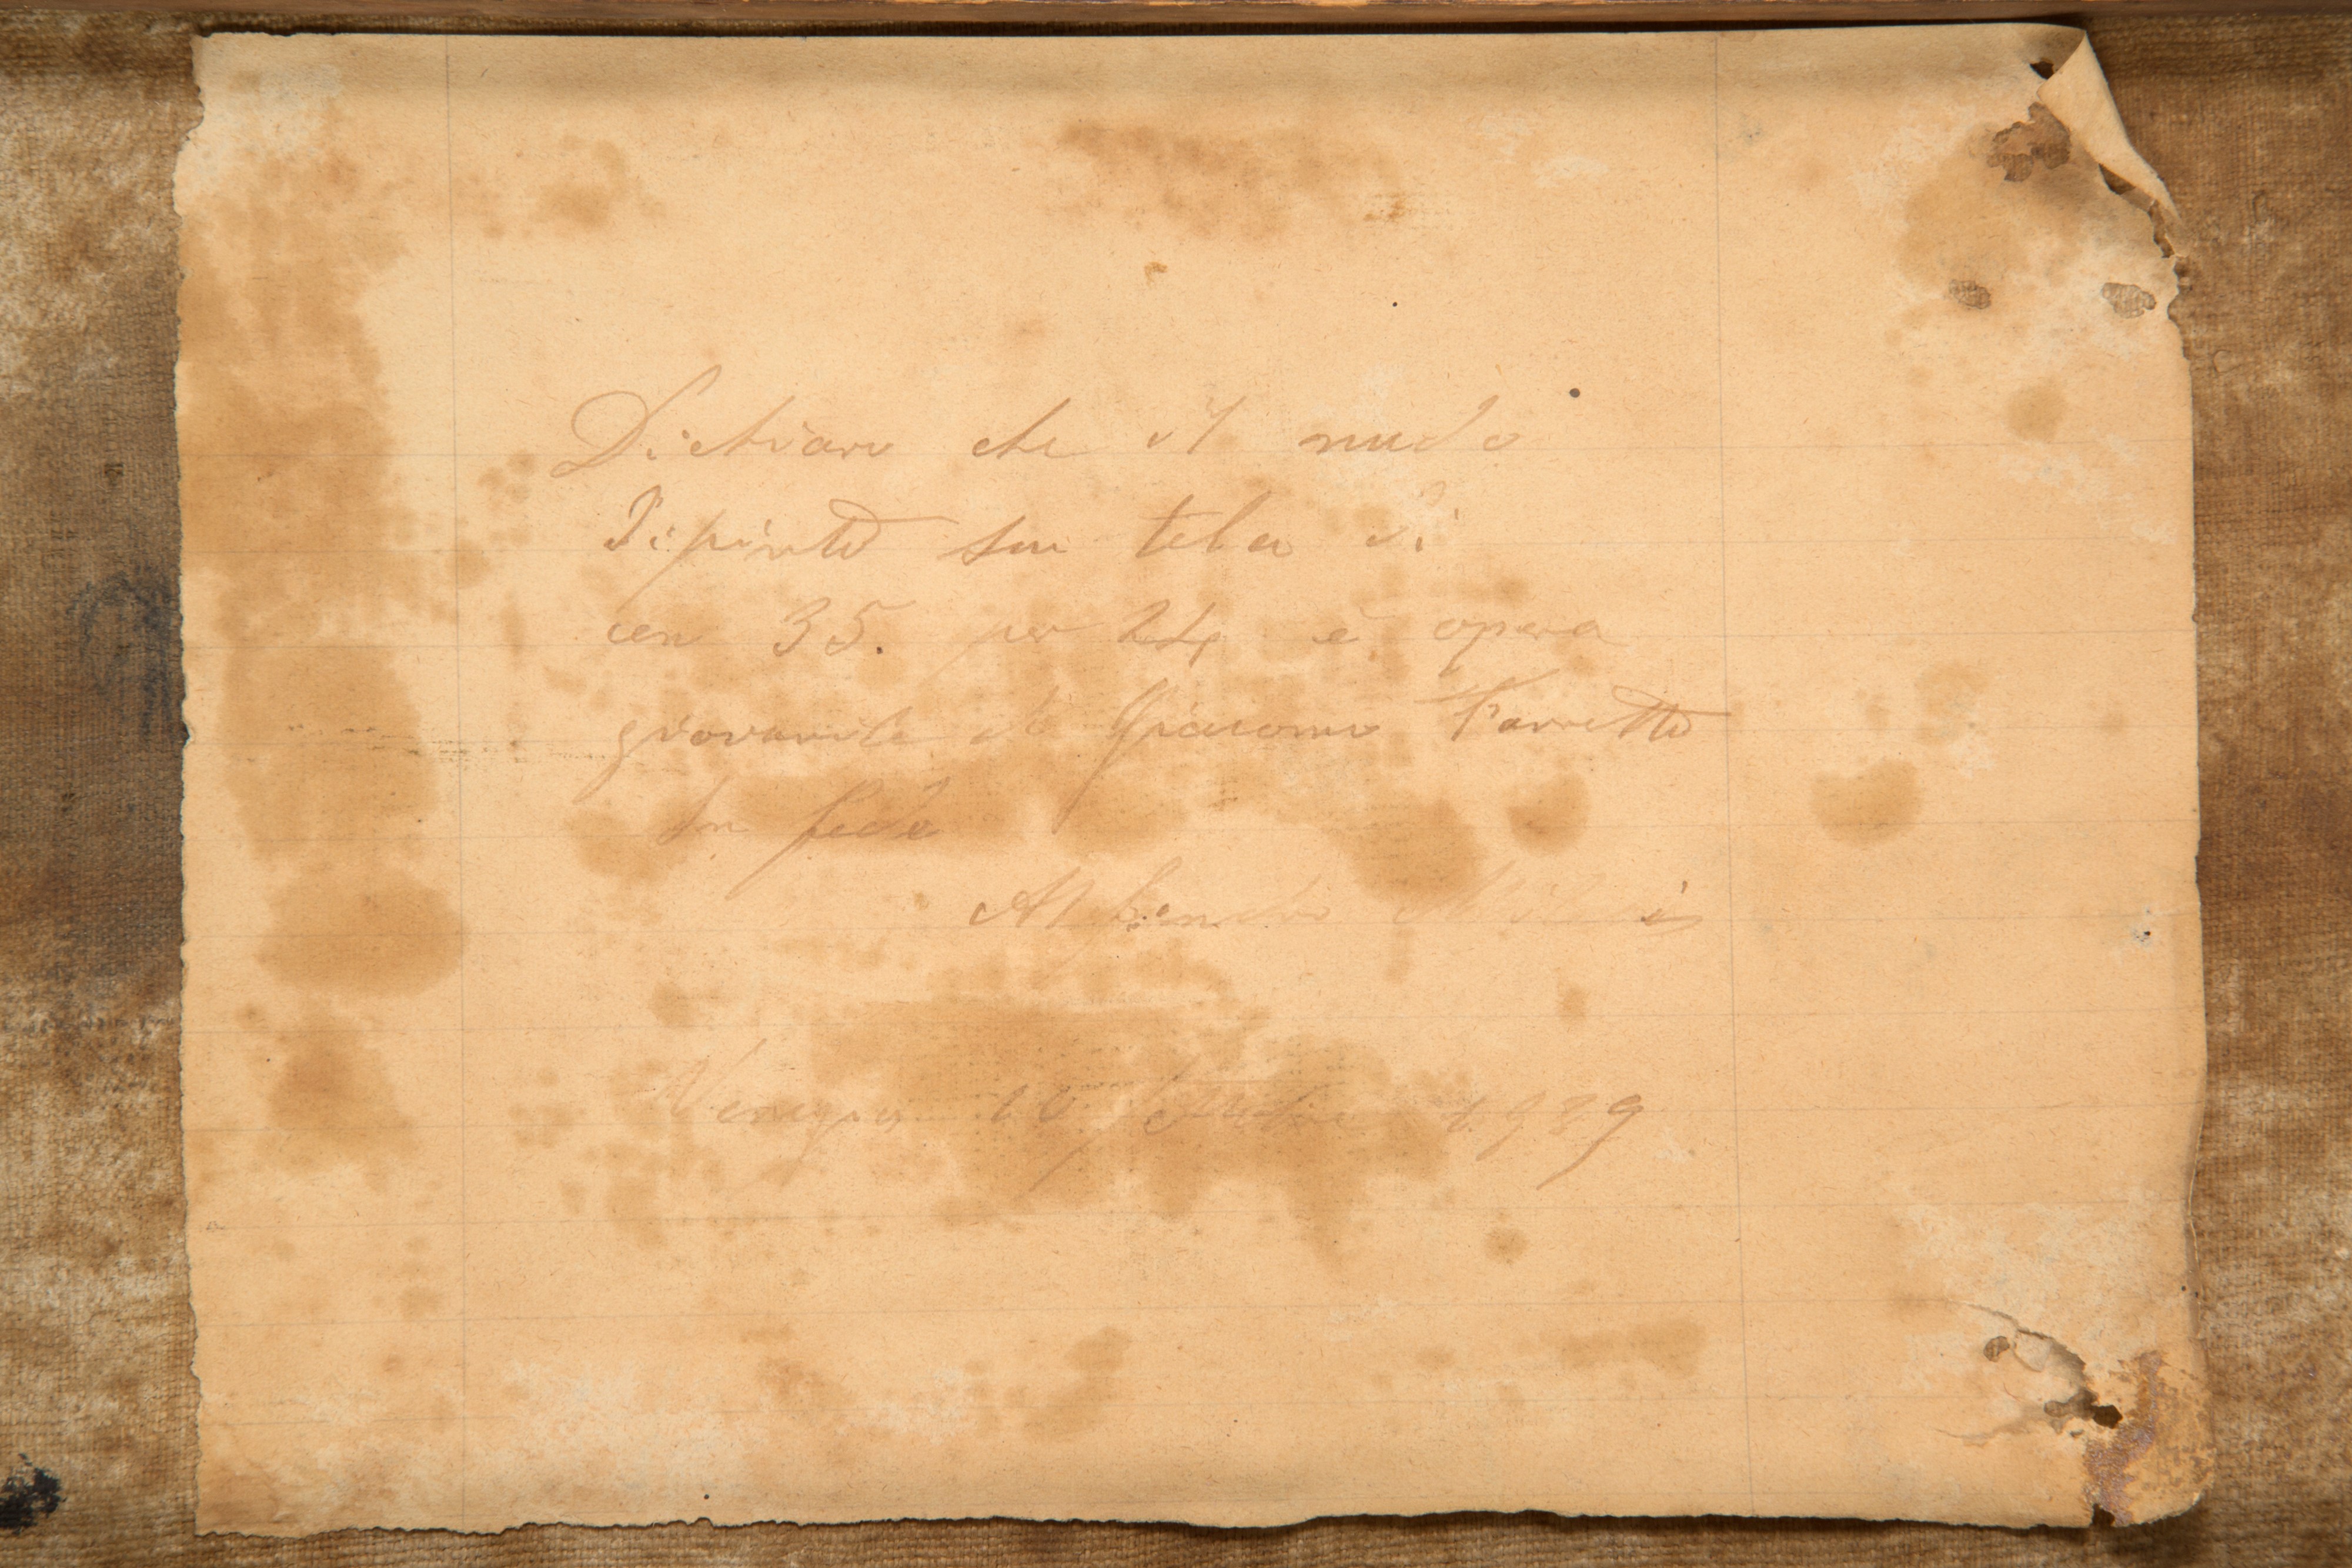 Dichiaro che il nudo
dipinto su tela di
cen 35. per 24 è opera
giovanile di Giacomo Favretto
In fede
Venezia 10 1929